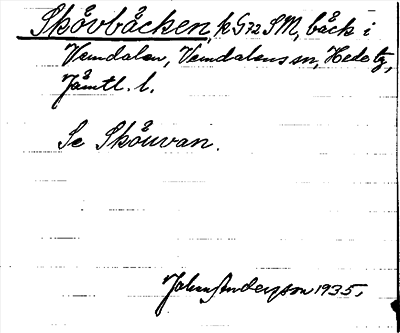 Skåvbäcken, k G72 SM, bäck i
Vemdalen, Vemdalens sn, Hede tg,
Jämtl. l.
Se Skåuvan.
Johan Anderson 1935.